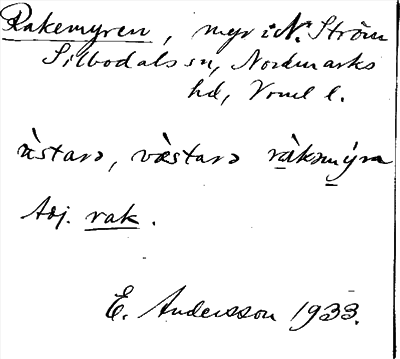 Rakemyren, myr i N. Ström
Silbodals sn, Nordmarks
hd, Vrml l.
östarə, vàstarə ràkəmýra
Adj. rak.
E. Andersson 1933.